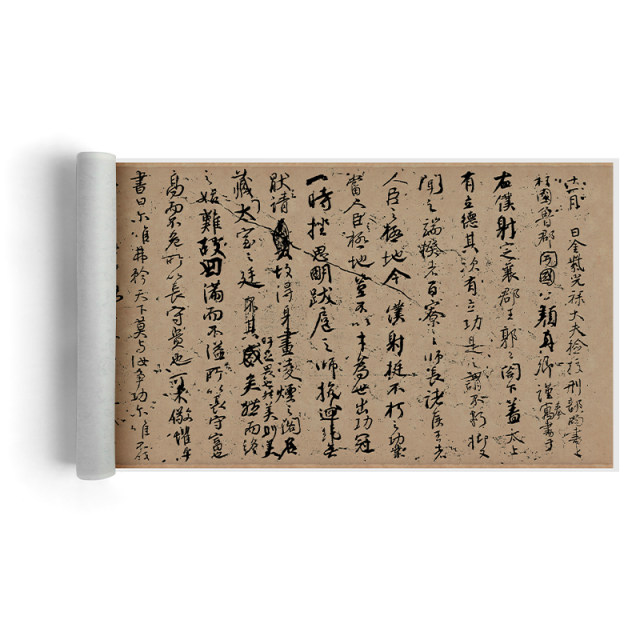 十一月 日金紫光祿大夫撿挍刑部尚書上
柱國魯郡開國公顏真卿謹寓書于
右僕射定襄郡王郭公閣下蓋太上
有立德其次有立功是之謂不朽抑又
聞之端揆者百寮之師長諸侯王者
人臣之極地今僕射挺不朽之功業
當人臣極地豈不以才為世出功冠
一時挫思明跋扈之師抗迴紇無
猒之請故得身畫凌煙之閣名
藏太室之廷吁足畏也然美則美矣而終
之始難故曰滿而不溢所以長守富也
高而不危所以長守貴也可不儆懼乎
書曰爾唯弗矜天下莫與汝爭功爾唯不伐